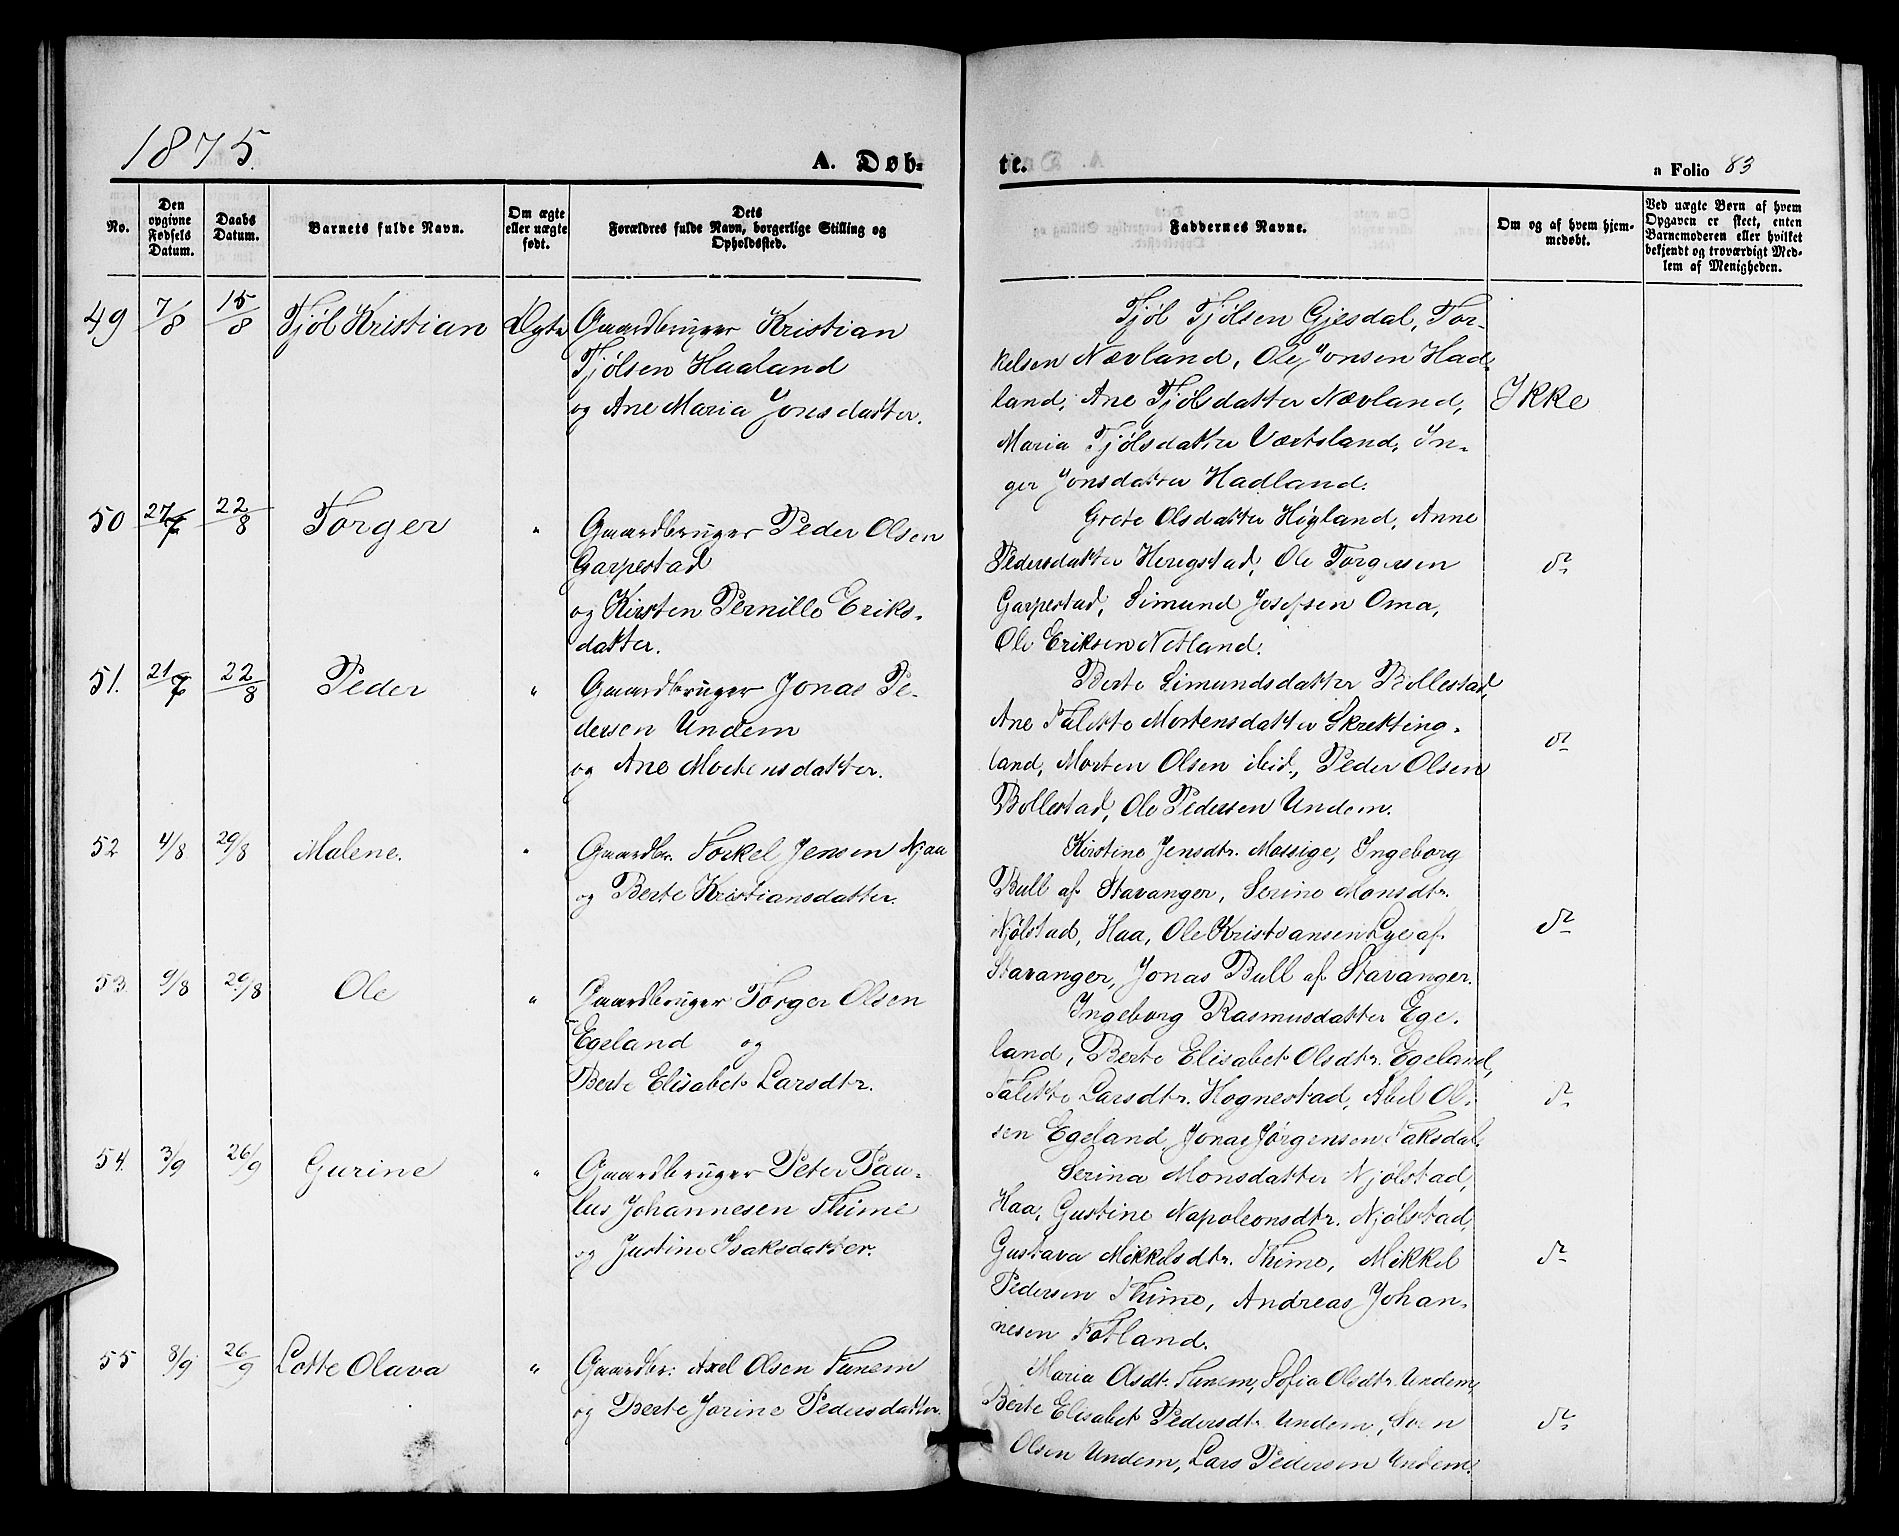 1875.
A. Døb-
te.
a Folio 83
No.
Den
opgivne
Fødsels
Datum.
Daabs
Datum.
Barnets fulde Navn.
Om ægte
eller uægte
født.
Dets
Forældres fulde Navn, borgerlige Stilling og
Opholdssted.
Faddernes Navne.
Om og af hvem hjem-
medøbt.
Ved uægte Børn af hvem
Opgaven er skeet, enten
Barnemoderen eller hvilket
bekjendt og troværdigt Med-
lem af Menigheden.
49 7/8 15/8 Tjøl Kristian Ægte Gaardbruger Kristian
Tjølsen Haaland
og Ane Maria Jonsdatter.
Tjøl Tjølsen Gjesdal, Tor-
kelsen Nævland, Ole Jonsen Had-
land, Ane Tjølsdatter Nævland,
Maria Tjølsdatter Værtsland, In-
ger Jonsdatter Hadland.
Ikke
50 27/7 22/8 Torger " Gaardbruger Peder Olsen
Garpestad
og Kirsten Pernille Eriks-
datter.
Grete Olsdatter Høyland, Anne
Pedersdatter Herigstad, Ole Torgersen
Garpestad, Simund Josefsen Oma,
Ole Eriksen Netland.
do
51. 21/7 22/8 Peder " Gaardbruger Jonas Pe-
dersen Undem
og Ane Mortensdatter.
Berte Simundsdatter Bollestad,
Ane Talette Mortensdatter Skrekting-
land, Morten Olsen ibid., Peder Olsen
Bollestad, Ole Pedersen Undem.
do
52 4/8 29/8 Malene. " Gaardbr. Torkel Jensen Njaa
og Berte Kristiansdatter.
Kirstine Jensdtr. Mossige, Ingeborg
Bull af Stavanger, Serine Monsdtr.
Njølstad, Haa, Ole Kristiansen Lye af
Stavanger, Jonas Bull af Stavanger.
do
53. 9/8 29/8 Ole " Gaardbruger Torger Olsen
Egeland og
Berte Elisabet Larsdtr.
Ingeborg Rasmusdatter Ege-
land, Berte Elisabet Olsdtr. Egeland,
Talette Larsdtr. Hognestad, Abel Ol-
sen Egeland, Jonas Jørgensen Taksdal.
do
54. 3/9 26/9 Gurine " Gaardbruger Peter Pau-
lus Johannesen Thime
og Justine Isaksdatter.
Serina Monsdatter Njølstad,
Haa, Gustine Napoleonsdtr. Njølstad,
Gustava Mikkelsdtr. Thime, Mikkel
Pedersen Thime, Andreas Johan-
nesen Fotland.
do
55 8/9 26/9 Lotte Olava " Gaardbr. Axel Olsen Tunem
og Berte Jorine Pedersdatter.
Maria Olsdtr. Tunem, Sofia Olsdtr. Undem,
Berte Elisabet Pedersdtr. Undem, Sven
Olsen Undem, Lars Pedersen Undem.
do